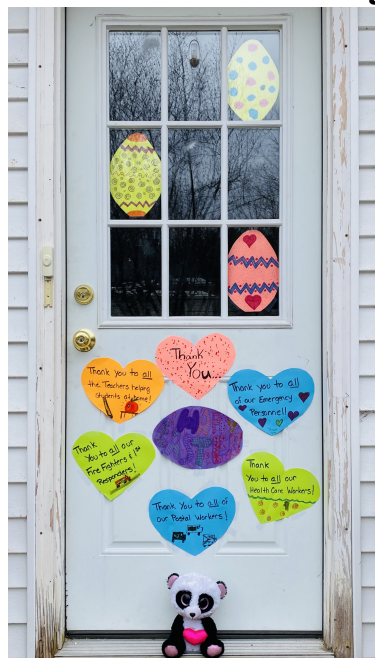 Thank
You...
Thank you to all
the Teachers helping
Students at home!
Thank you to all
of our Emergency
Personnel!
Thank
You to all our
Fire Fighters & 1st
Responders!
Thank
You to all our
Health Care Workers!
Thank You to all of
our Postal Workers!